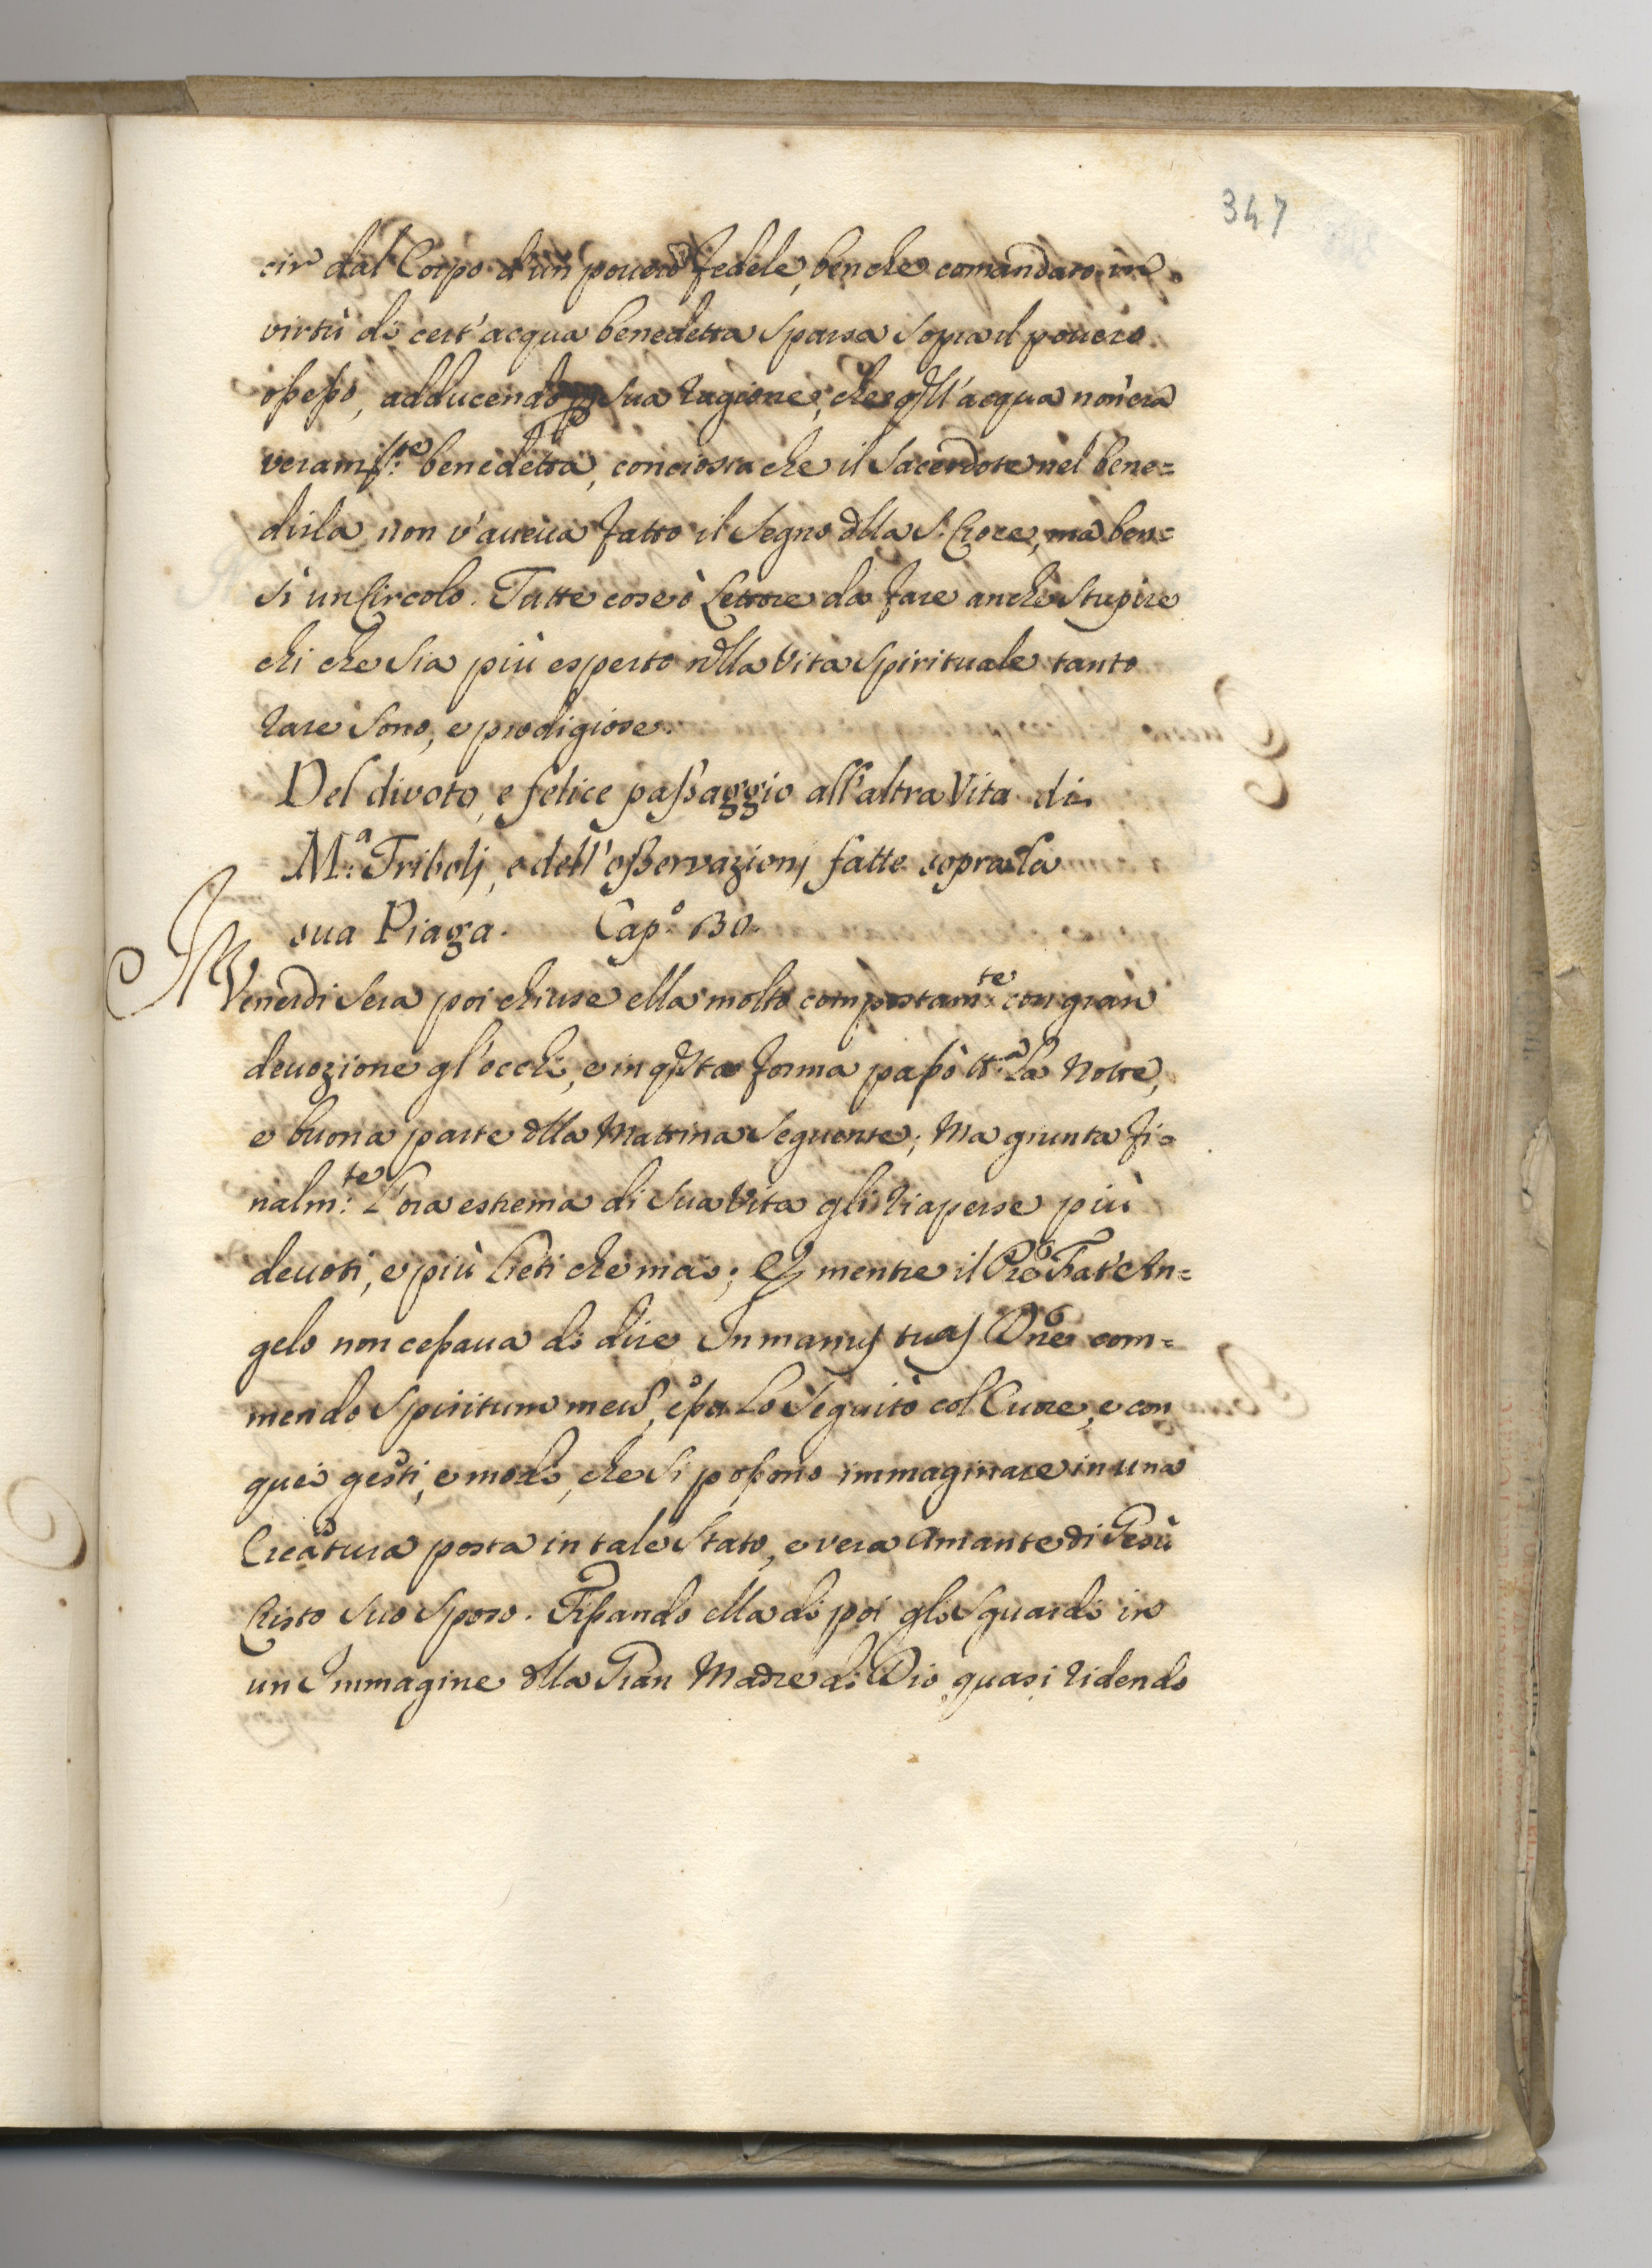 347
cir dal Corpo d'un povero fedele, benche comandato in
virtù di cert'acqua benedetta sparsa sopra il povero
osseßo, adducendo p sua ragione, che qll'acqua non era
veram:te benedetta, conciosia che il Sacerdote nel bene=
dirla non v'aueua fatto il segno dlla S. Croce, mà ben=
sì un Circolo. Tutte cose ò Lettore da fare anche stupire
chi che sia più esperto nlla Vita Spirituale tanto
rare sono, e prodigiose.
Del divoto, e felice passaggio all'altra Vita di
M:a Triboli, e dell'oßervazioni fatte sopra la
sua Piaga. Cap.o 130.
Il
Venerdi sera poi chiuse ella molto compostam:te con gran
deuozione gl'occhi, e in qsta forma paßò tt:a la Notte,
e buona parte dlla Mattina seguente; Ma giunta fi=
nalm:te l'ora estrema di sua Vita gli riaperse più
deuoti, e più lieti che mai; E mentre il Pre Frat'An=
gelo non ceßaua di dire In manus tuas Dne com=
mendo Spiritum meũ, eßa lo seguitò col Cuore, e con
quei gesti, e modi, che si poßono immaginare in una
Creatura posta in tale stato, e vera Amante di Gesù
Cristo suo Sposo. Fißando ella di poi gli sguardi in
un Immagine dlla Gran Madre di Dio quasi ridendo